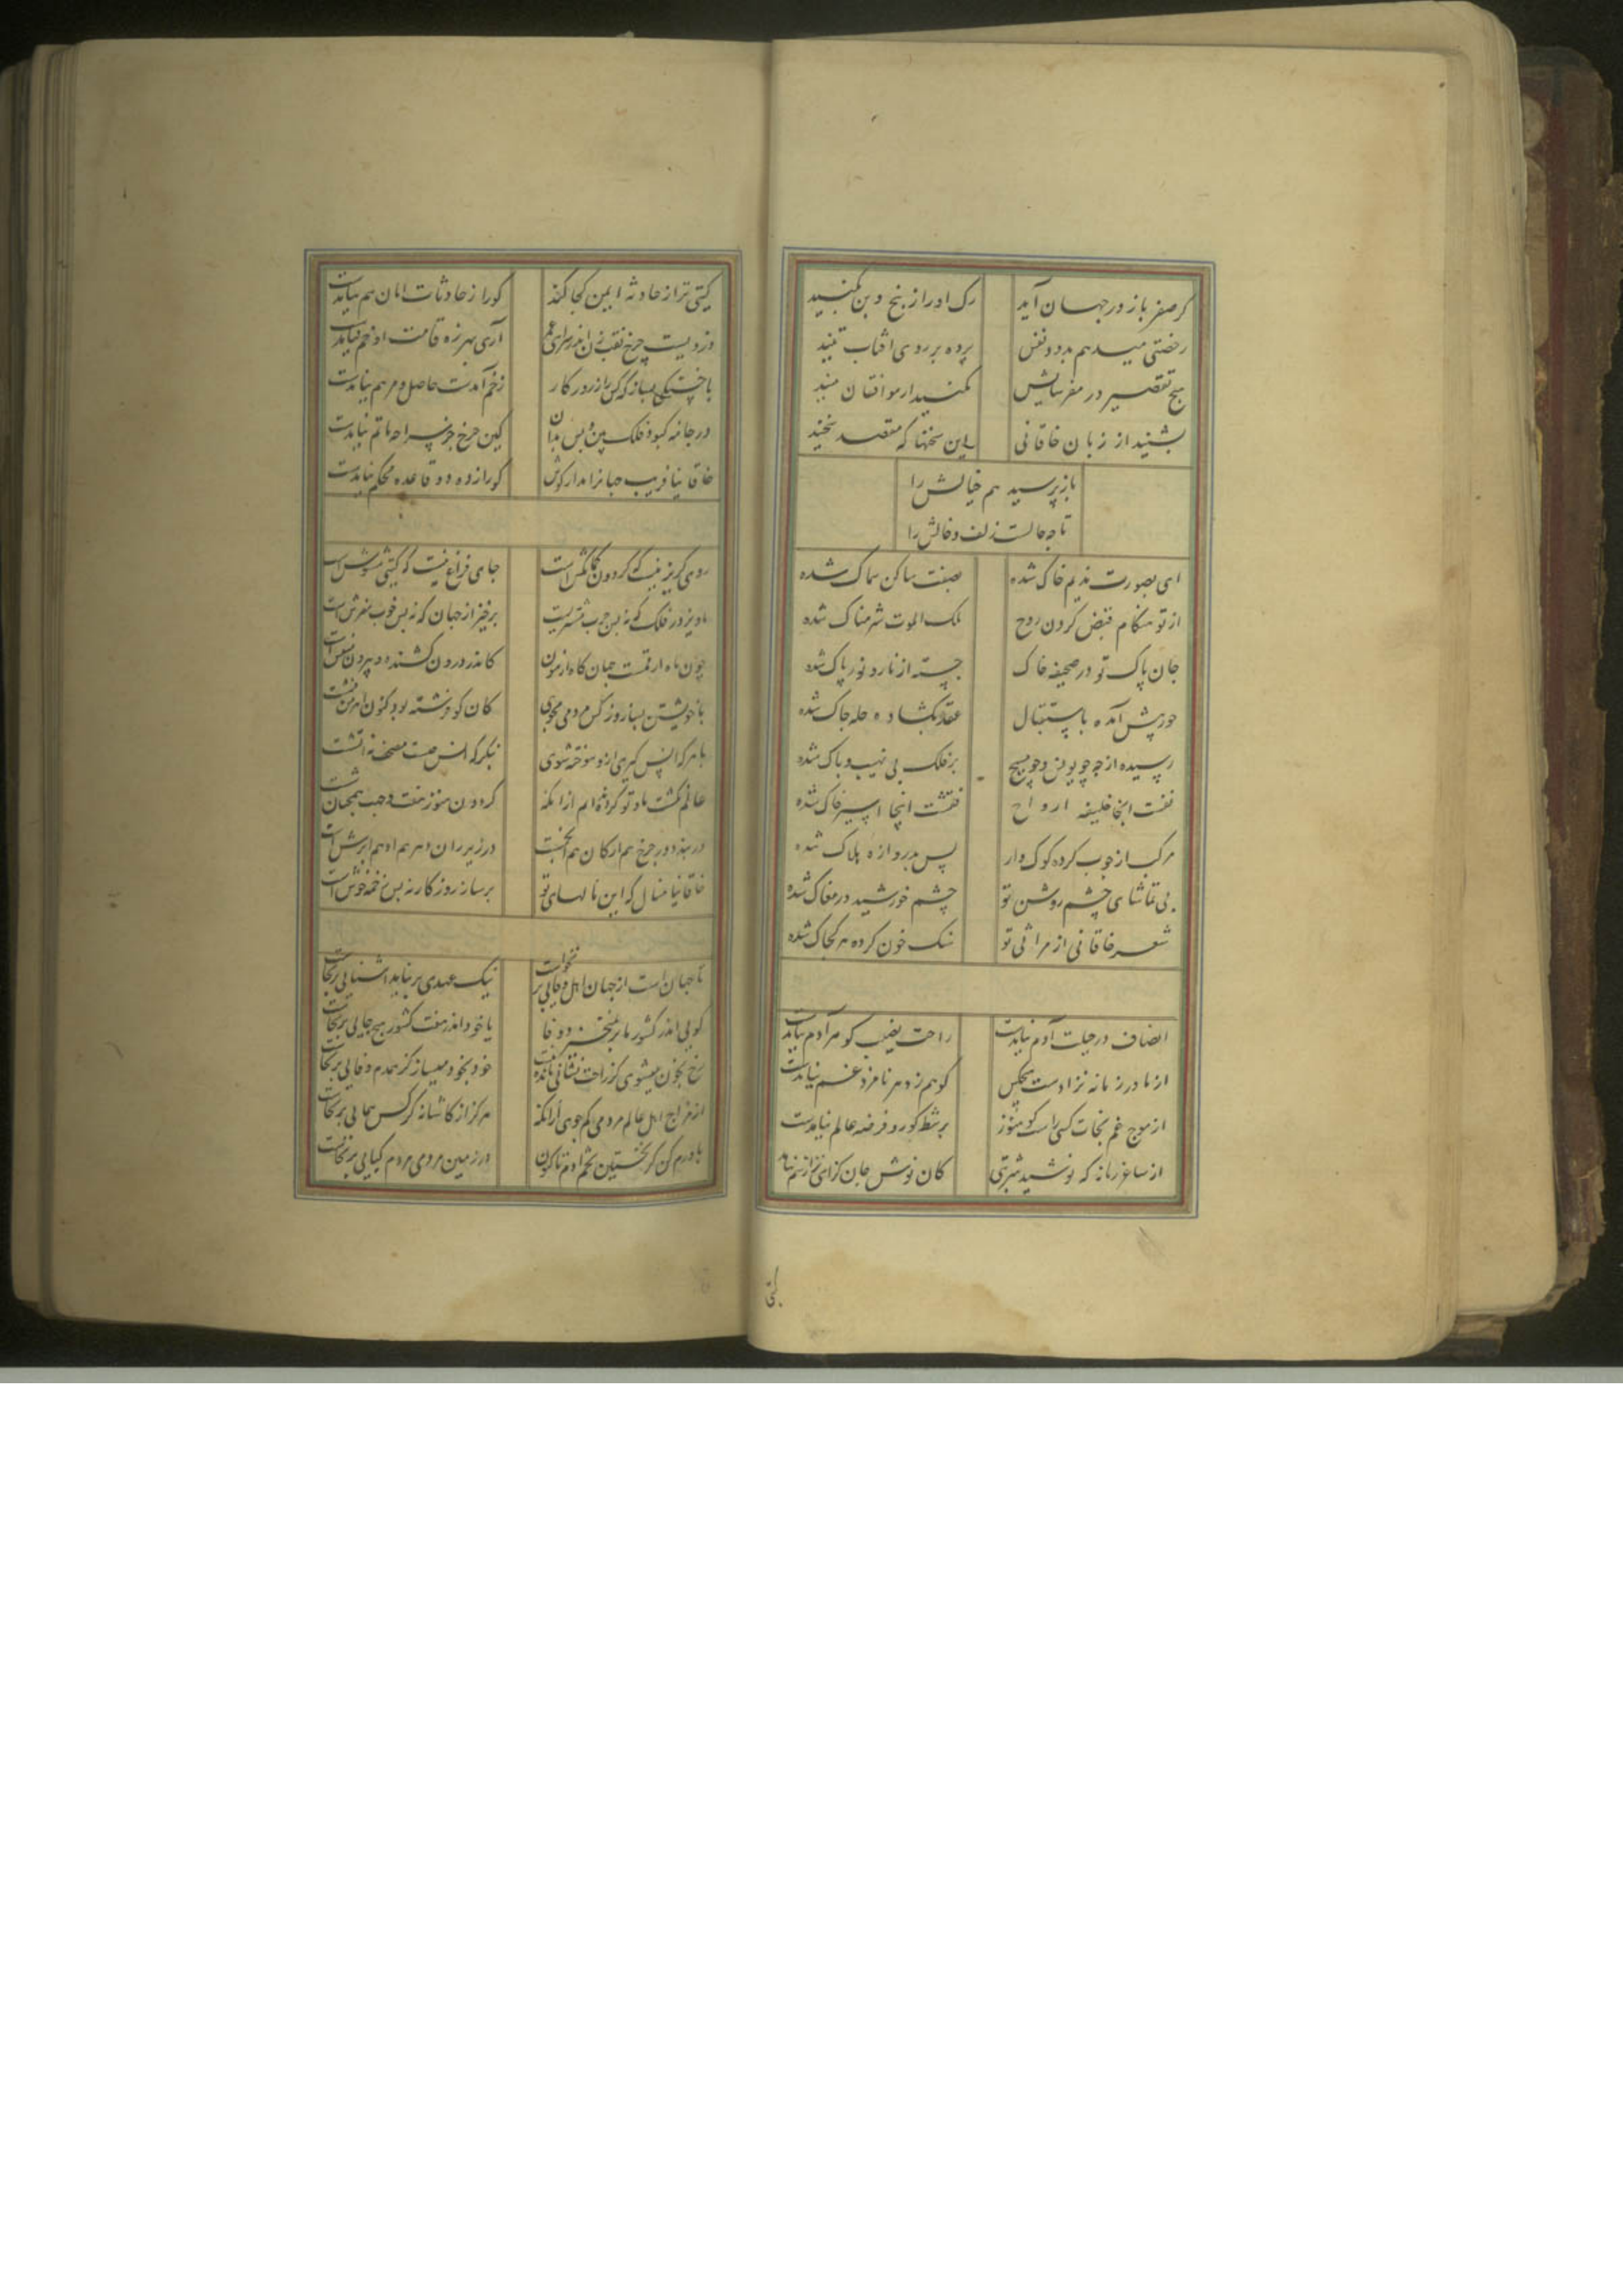 گر صفر باز در جهان آید رگ او را ز بیخ و بن بکنید
رخصتی میدهم بدود نفس پرده بر روی آفتاب تنید
هیچ تقصیر در معزیش مکنید ار موافقان منید
بشنید از زبان خاقانی این سخنها که معتقد سخنید
باز پرسید هم خیالش را
تا چه حالست زلف و خالش را
ای بصورت ندیم خاک شده بصفت ساکن سماک شده
از تو هنگام قبض کردن روح ملک الموت شرمناک شده
جان پاک تو در صحیفه خاک جسته از نار و نور پاک شده
حورپیش آمده باستقبال عقد بگشاده حله چاک شده
رسیده از چه چو یوسف و چو مسیح بر فلک بی نهیب و باک شده
نفست اینجا خلیفه ارواح نقشت اینجا اسیر خاک شده
مرکب از چوب کرده کودک وار پس بدروازه هلاک شده
بی تماشای چشم روشن تو چشم خورشید در مغاک شده
شعر خاقانی از مراثی تو سنگ خون کرده هر کجا که شده
انصاف در جبلت آدم نیامدست راحت نصیب گوهر آدم نیامدست
از مادر زمانه نزادست هیچکس کو هم ز دهر نامزد غم نیامدست
از موج غم نجات کسی راست کو هنوز بر شط کون و فرضه عالم نیامدست
از ساغر زمانه که نوشید شربتی کان نوش جان گزای تر از سم نیامد
گیتی
گیتی ترا ز حادثه ایمن کجا کند کورا ز حادثات امان هم نیامدست
دزدیست چرخ نقب زن اندر سرای عمر آری بهرزه قامت او خم نیامدست
با خستگی بساز که کس را ز روزگار زخم آمدست حاصل و مرهم نیامدست
در جامه کبود فلک بین و پس بدان کین چرخ جز سراچه ماتم نیامدست
خاقانیا فریب جهان را مدار گوش کورا ز ده دو قاعده محکم نیامدست
روی گریز نیست که گردون کمانکش است جای فراغ نیست که گیتی مشوش است
ماویز در فلک که نه بس چرب مشربست برخیز از جهان که نه بس خوب مفرش است
چون ماه ار قمت جهان کاه ازمون کاندر درون کشنده و بیرون منقش است
با خویشتن بساز و ز کس مردمی مجوی کان کو فرشته بود کنون اهرمن فشست
با هر که انس گیری ازو سوخته شوی بنگر که انس چیست مصحف نه آتشست
عالم نگشت و ما و تو گردنده ایم از آنکه گردون هنوز هفت و جهت همچنان ششت
در بند دور چرخ هم ارکان هم انجمست در زیر ران دهر هم ادهم هم ابرش است
خاقانیا منال که این نالهای تو بر ساز روزگار نه بس نغمه خوش است
تا جهان است از جهان اهل وفایی بر نخواست نیک عهدی بر نیاید آشنایی برنخاست
گویی اندر کشور ما بر نمیخیزد وفا یا خود اندر هفت کشور هیچ جایی برنخاست
رخ بخون میشوی کز راحت نشانی مانده نیست خود بخود میساز کز همدم وفایی برنخاست
از مزاج اهل عالم مردمی کم جوی از آنکه هرگز از کاشانه کرکس همایی برنخاست
باورم کن کز نخستین تخم آدم تا کنون در زمین مردمی مردم گیایی برنخاست